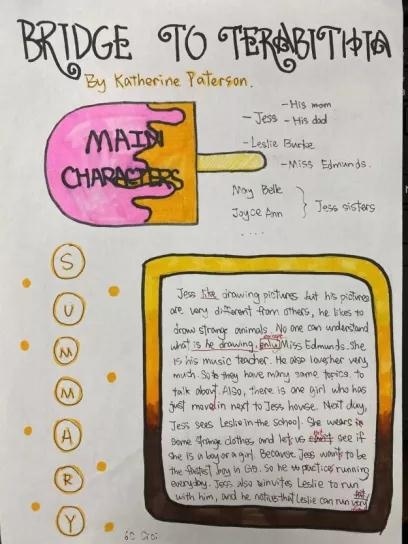 BRIDGE TO TERABITHIA
By Katherine Paterson.
MAIN
CHARACTERS
- Jess
- His mom
- His dad
- Leslie Burke
- Miss Edmunds.
May Belle
Joyce Ann
Jess sisters
....
SUMMARY
Jess like drawing pictures but his pictures
are very different from others, he likes to
draw strange animals. No one can understand
what is he drawing, only Miss Edmunds. She
is his music teacher. He also loves her very
much. So they have many same topics to
talk about. Also, there is one girl who has
just moved in next to Jess house. Next day,
Jess sees Leslie in the school. She wears
some strange clothes and let us see if
she is a boy or a girl. Because Jess wants to be
the fastest boy in G5. So he practice running
everyday. Jess also invites Leslie to run
with him, and he notices that Leslie can run very
fast